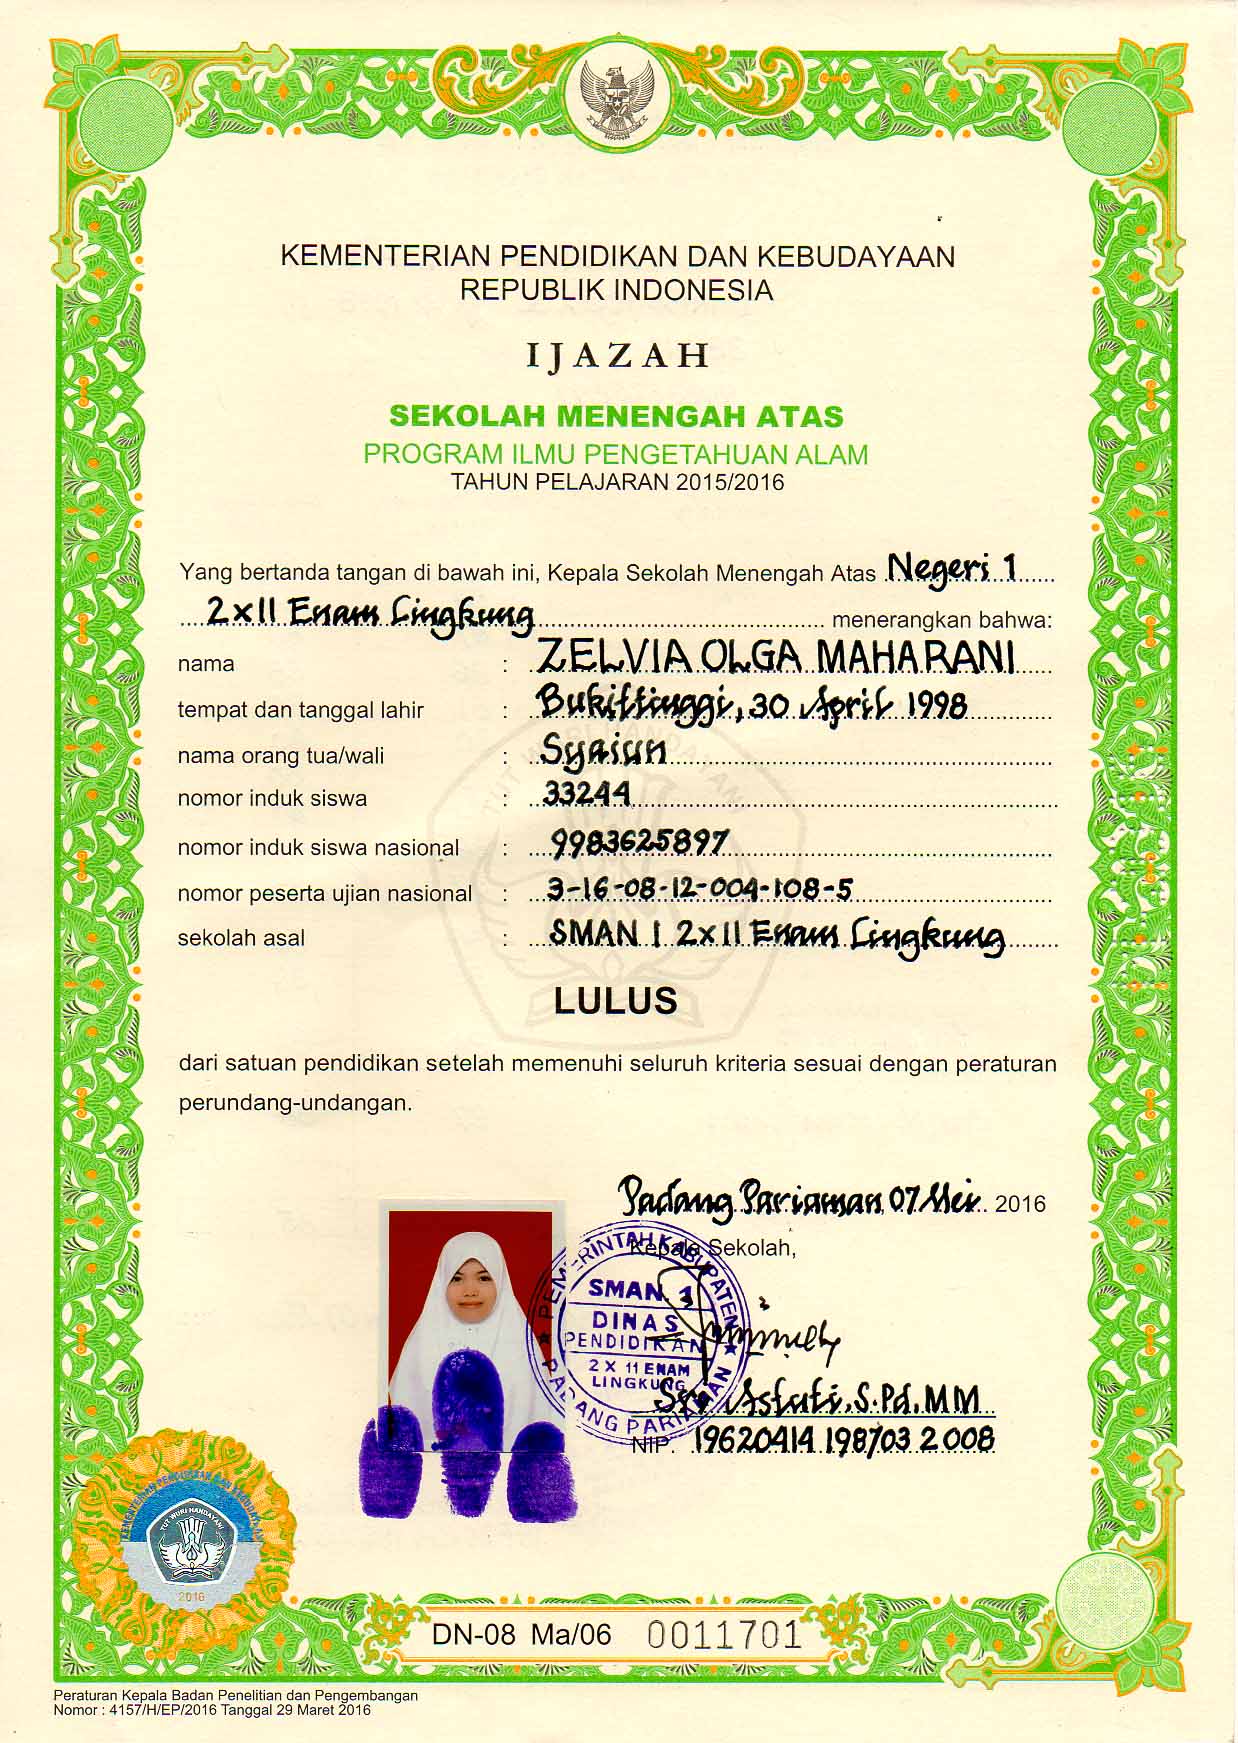 KEMENTERIAN PENDIDIKAN DAN KEBUDAYAAN
REPUBLIK INDONESIA
IJAZAH
SEKOLAH MENENGAH ATAS
PROGRAM ILMU PENGETAHUAN ALAM
TAHUN PELAJARAN 2015/2016
Yang bertanda tangan di bawah ini, Kepala Sekolah Menengah Atas Negeri 1
2x11 Enam Lingkung menerangkan bahwa:
nama : ZELVIA OLGA MAHARANI
tempat dan tanggal lahir : Bukittinggi, 30 April 1998
nama orang tua/wali : Syaiun
nomor induk siswa : 33244
nomor induk siswa nasional : 9983625897
nomor peserta ujian nasional : 3-16-08-12-004-108-5
sekolah asal : SMAN 1 2x11 Enam Lingkung
LULUS
dari satuan pendidikan setelah memenuhi seluruh kriteria sesuai dengan peraturan
perundang-undangan.
Padang Pariaman, 07 Mei 2016
Kepala Sekolah,
PEMERINTAH KABUPATEN
SMAN. 1
DINAS
PENDIDIKAN
2 X 11 ENAM
LINGKUNG
PADANG PARIAMAN
Sri Astuti, S.Pd, MM
NIP. 19620414 198703 2 008
KEMENTERIAN PENDIDIKAN DAN KEBUDAYAAN
TUT WURI HANDAYANI
2016
DN-08 Ma/06 0011701
Peraturan Kepala Badan Penelitian dan Pengembangan
Nomor : 4157/H/EP/2016 Tanggal 29 Maret 2016